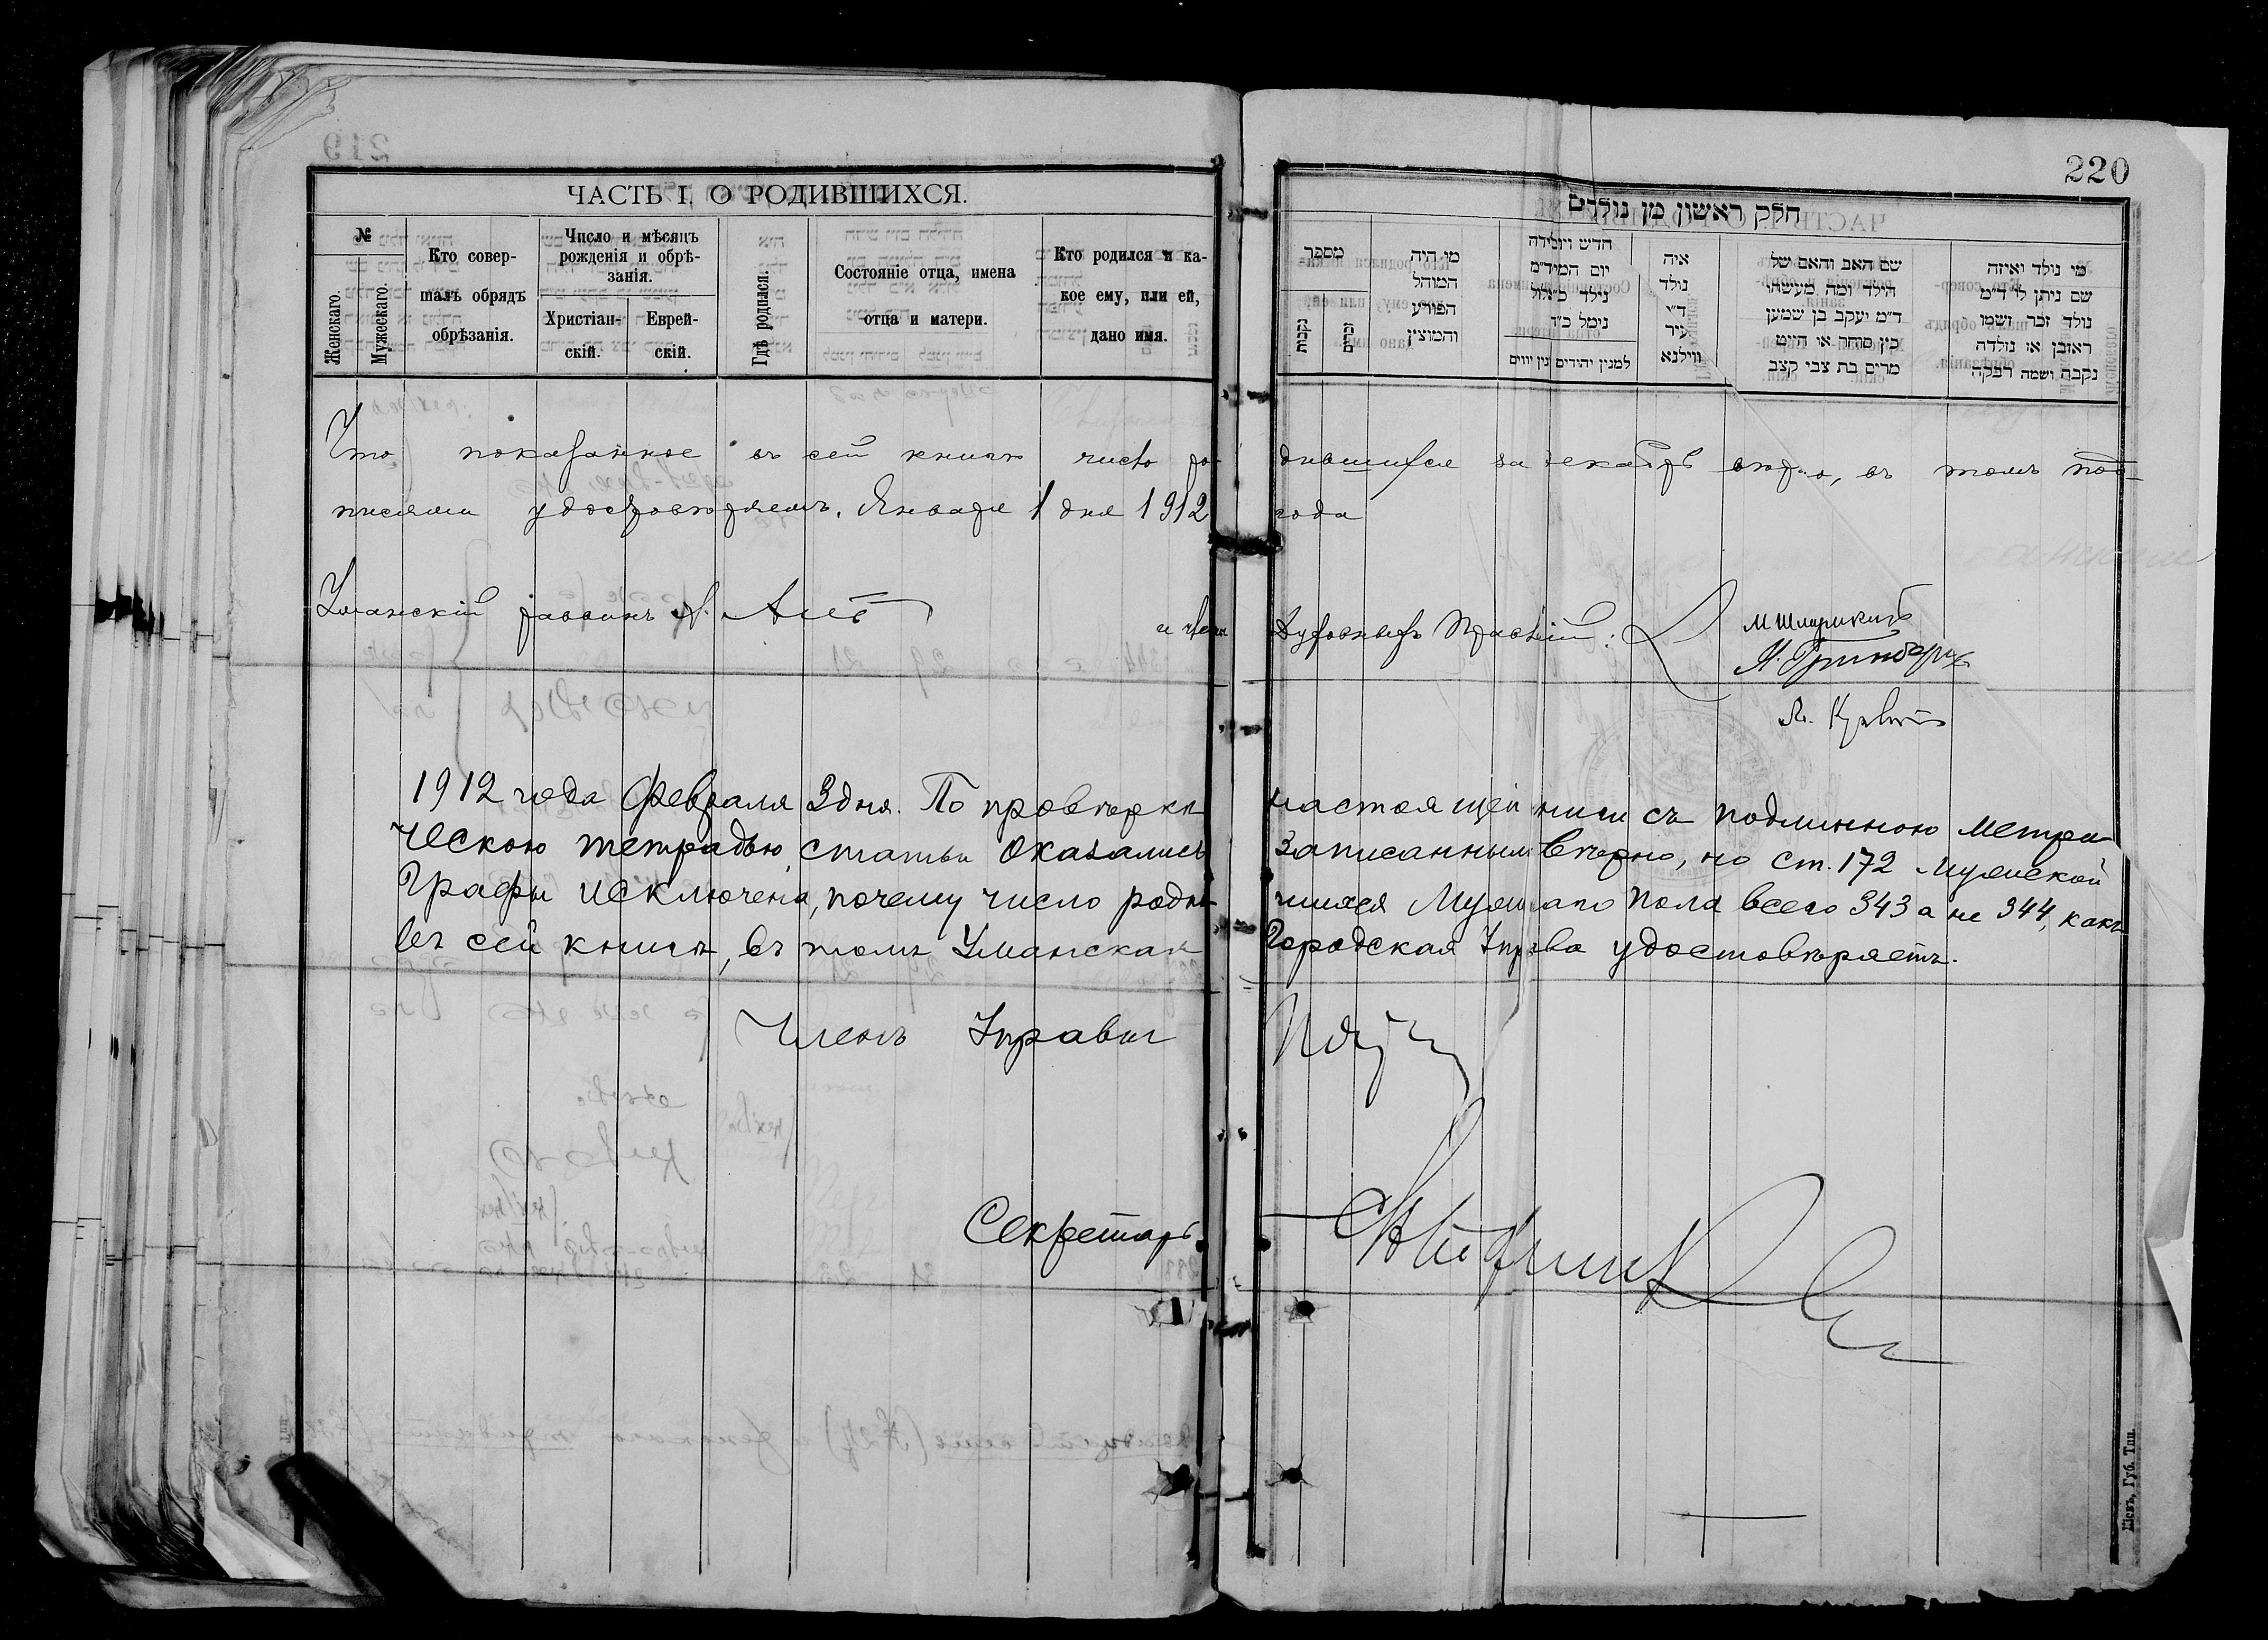 220
ЧАСТЬ I. О РОДИВШИХСЯ.
№
Женскаго.
Мужескаго.
Кто совер-
шалъ обрядъ
обрѣзанія.
Число и мѣсяцъ
рожденія и обрѣ-
занія.
Христіан-
скій.
Еврей-
скій.
Гдѣ родился.
Состояніе отца, имена
отца и матери.
Кто родился и ка-
кое ему, или ей,
дано имя.
חלק ראשון מן נולדים
מספר
נקבות
זכרים
מי היה
המוהל
הפורע
והמוצץ
חדש ויולידה
יום המיד״מ
נילד כ״אלול
נימל כ״ד
למנין יהודים
למנין יווים
איה
נולד
ד״י
עיר
ווילנא
שם האב והאם של
הילד ומה מעשהו
ד״מ יעקב בן שמעון
כץ סוחר או חייט
מרים בת צבי קצב
מי נולד ואיזה
שם ניתן לו ד״מ
נולד זכר ושמו
ראובן או נולדה
נקבה ושמה רבקה
Что показанное въ сей книгѣ число родившихся за декабрь вѣрно, въ томъ под-
писями удостовѣряемъ. Января 1 дня 1912 года
Уманскій раввинъ
и члены Духовныхъ Правленій:
М Шпирикинъ
Я. Гринбергъ
Я. Кравецъ
1912 года Февраля 3 дня. По провѣркѣ настоящей книги съ подлинною Метри
ческою тетрадью, статьи оказались записанными вѣрно, но ст. 172 мужской
графы исключена, почему число родившихся мужскаго пола всего 343 а не 344, какъ
въ сей книгѣ, въ томъ Уманская Городская Управа удостовѣряетъ.
Членъ Управы
Секретарь
Кіевъ, Губ. Тип.